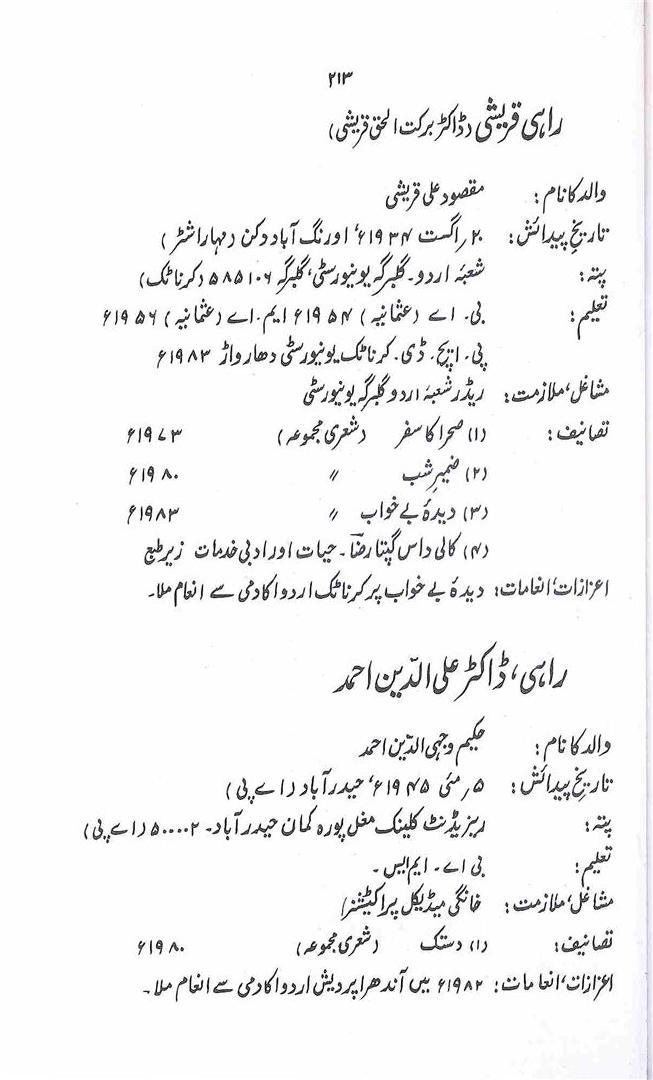 ۲۱۳
راہی قریشی (ڈاکٹر برکت الحق قریشی)
والد کا نام: مقصود علی قریشی
تاریخ پیدائش: ۲۰/اگست ۱۹۳۴ء، اورنگ آباد دکن (مہاراشٹر)
پتہ: شعبۂ اردو۔ گلبرگہ یونیورسٹی، گلبرگہ ۵۸۵۱۰۶ (کرناٹک)
تعلیم: بی۔ اے (عثمانیہ) ۱۹۵۴ء ایم۔اے (عثمانیہ) ۱۹۵۶ء
پی۔ ایچ۔ ڈی۔ کرناٹک یونیورسٹی دھارواڑ ۱۹۸۳ء
مشاغل، ملازمت: ریڈر شعبۂ اردو گلبرگہ یونیورسٹی
تصانیف: (۱) صحرا کا سفر (شعری مجموعہ) ۱۹۷۳ء
(۲) ضمیرِ شب // ۱۹۸۰ء
(۳) دیدۂ بے خواب // ۱۹۸۳ء
(۴) کالی داس گپتا رضاؔ۔ حیات اور ادبی خدمات زیر طبع
اعزازات، انعامات: دیدۂ بے خواب پر کرناٹک اردو اکادمی سے انعام ملا۔
راہی، ڈاکٹر علی الدّین احمد
والد کا نام: حکیم وجہی الدّین احمد
تاریخِ پیدائش: ۵/ مئی ۱۹۴۵ء، حیدرآباد (اے پی)
پتہ: ریزیڈنٹ کلینک مغل پورہ کمان حیدرآباد۔ ۵۰۰۰۰۲ (اے پی)
تعلیم: بی اے۔ ایم ایس۔
مشاغل، ملازمت: خانگی میڈیکل پراکٹیشنر
تصانیف: (۱) دستک (شعری مجموعہ) ۱۹۸۰ء
اعزازات، انعامات: ۱۹۸۲ء میں آندھرا پردیش اردو اکادمی سے انعام ملا۔